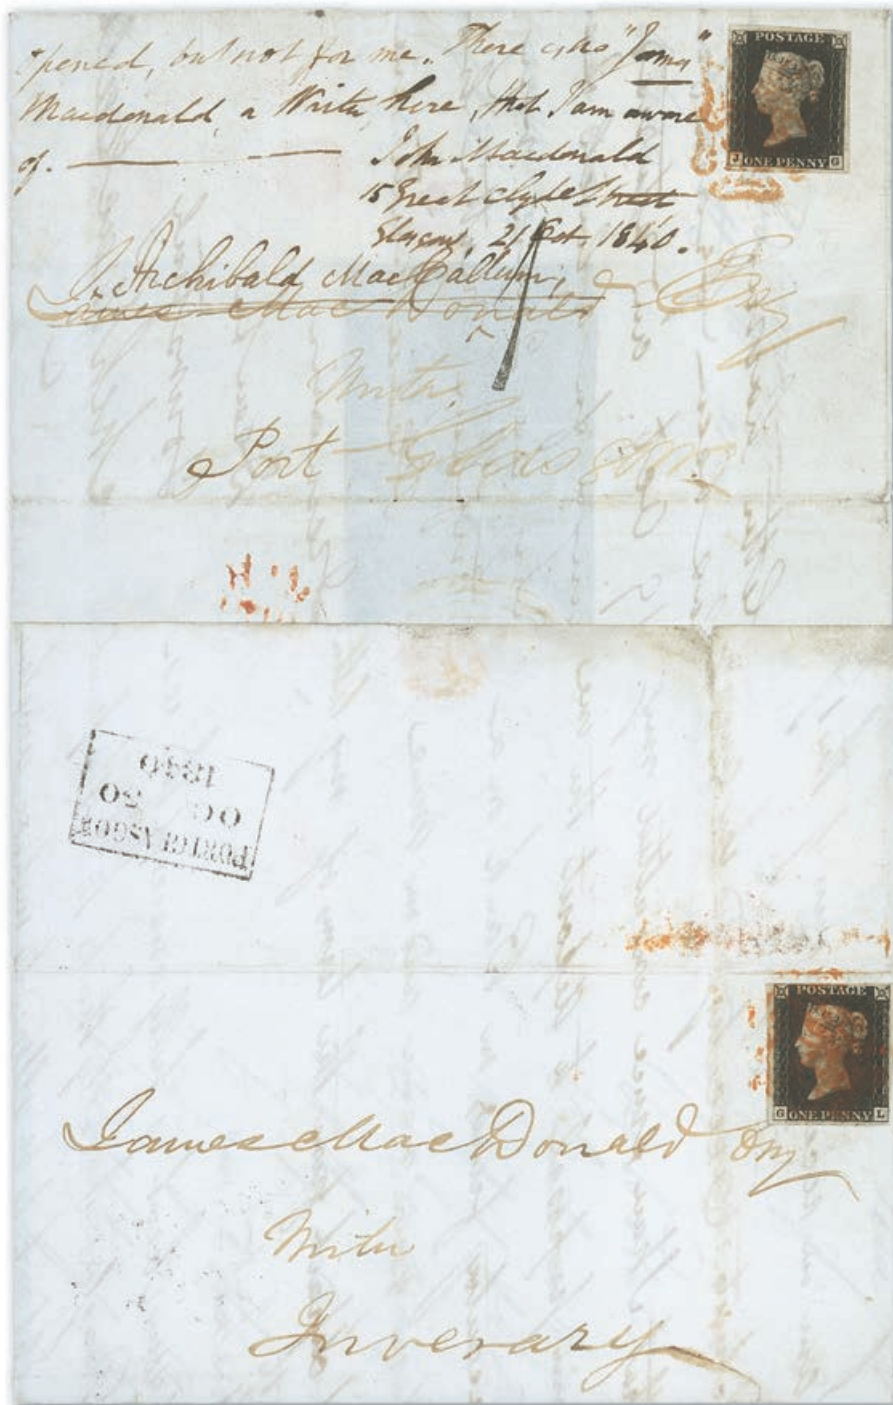 opened, but not for me. There is no "James"
Macdonald, a Writer, here, that I am aware
of. John Macdonald
15 Great Clyde Street
Glasgow, 21 Oct. 1840.
POSTAGE
J ONE PENNY G
Archibald MacCallum,
James MacDonald Esq
Writer
Port Glasgow
1
PORT GLASGOW
OC 20
1840
POSTAGE
G ONE PENNY L
James MacDonald Esq
Writer
Inverary